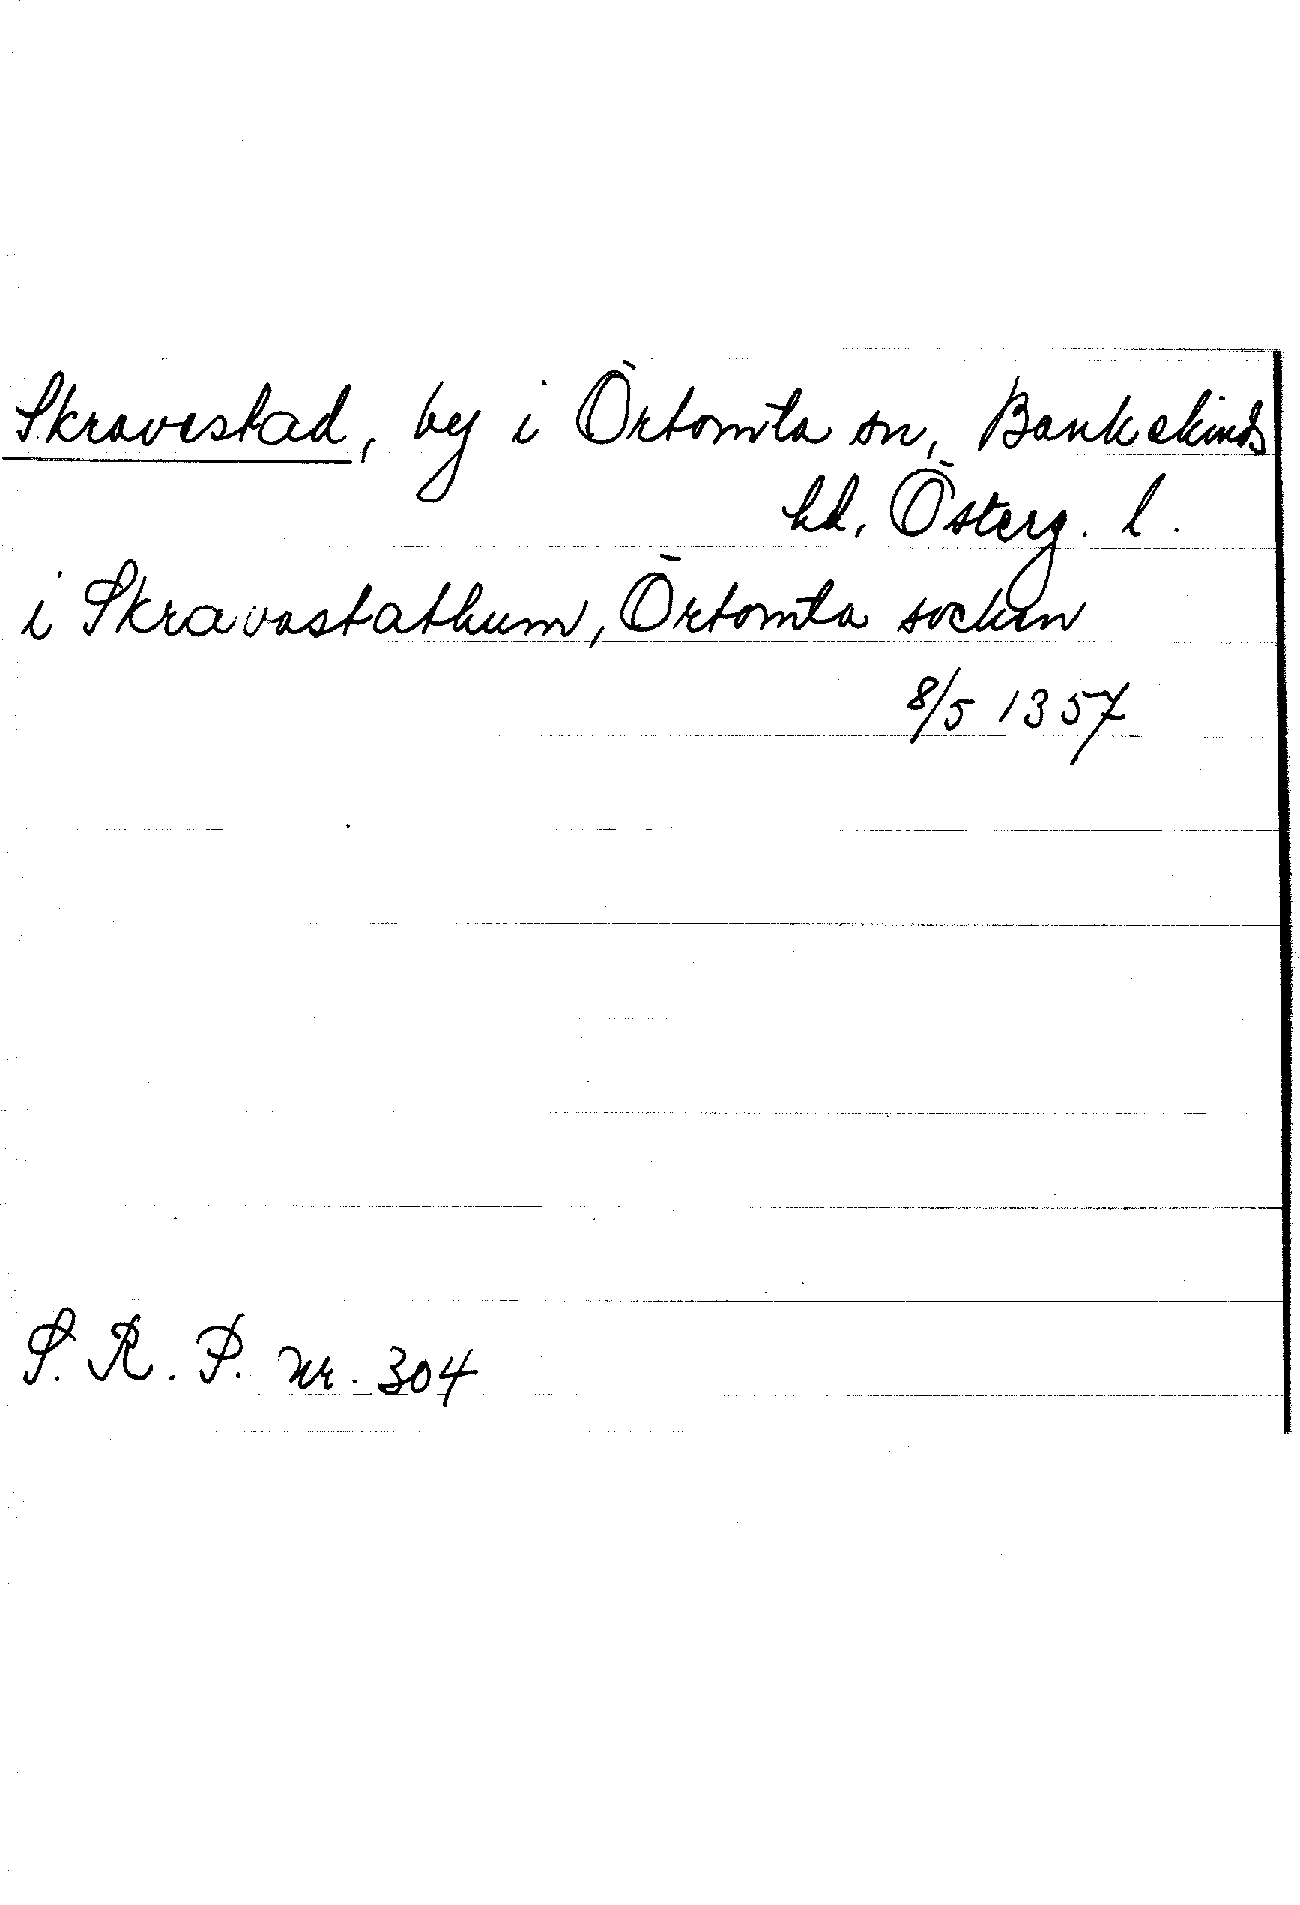 Skravestad, by i Örtomta sn, Bankekinds
hd, Österg. l.
i Skravastathum, Örtomta socken
8/5 1357
S. R. P. nr. 304